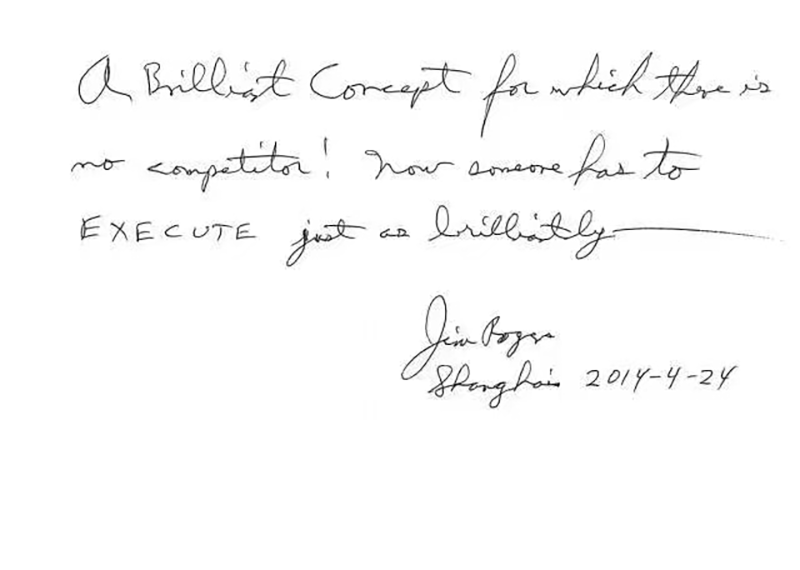 A Brilliant Concept for which there is
no competitor! Now someone has to
EXECUTE just as brilliantly
Jim Rogers
Shanghai 2014-4-24